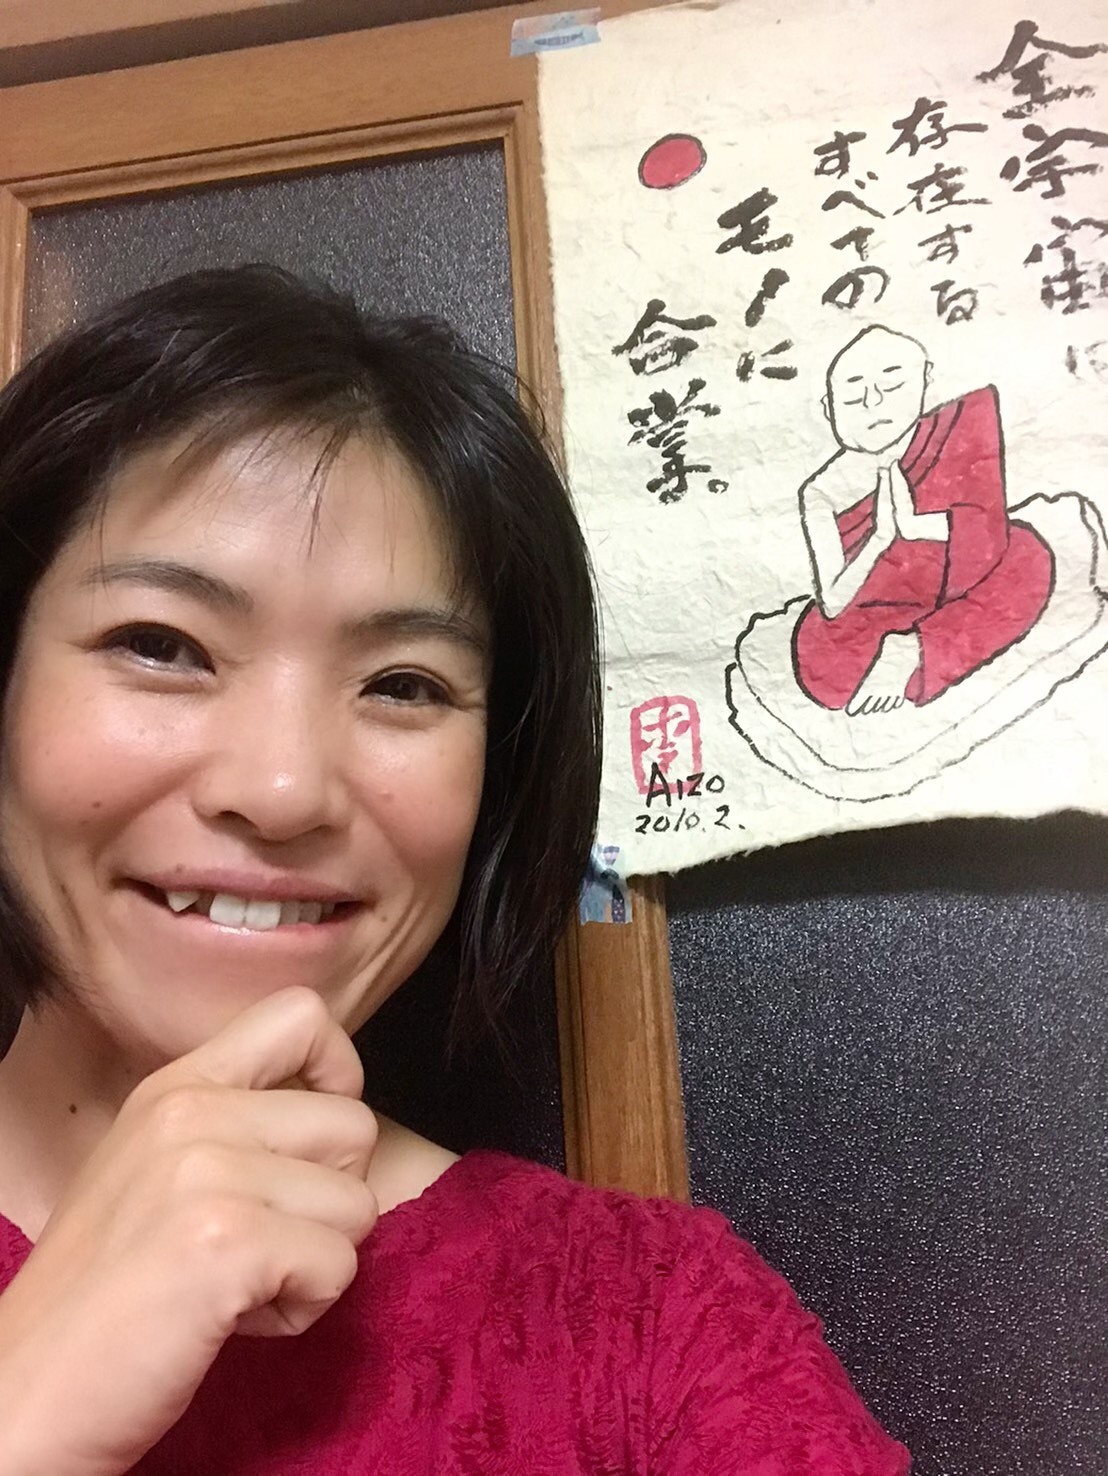 全宇宙に
存在する
すべての
モノに
合掌。
AIZO
2010.2.